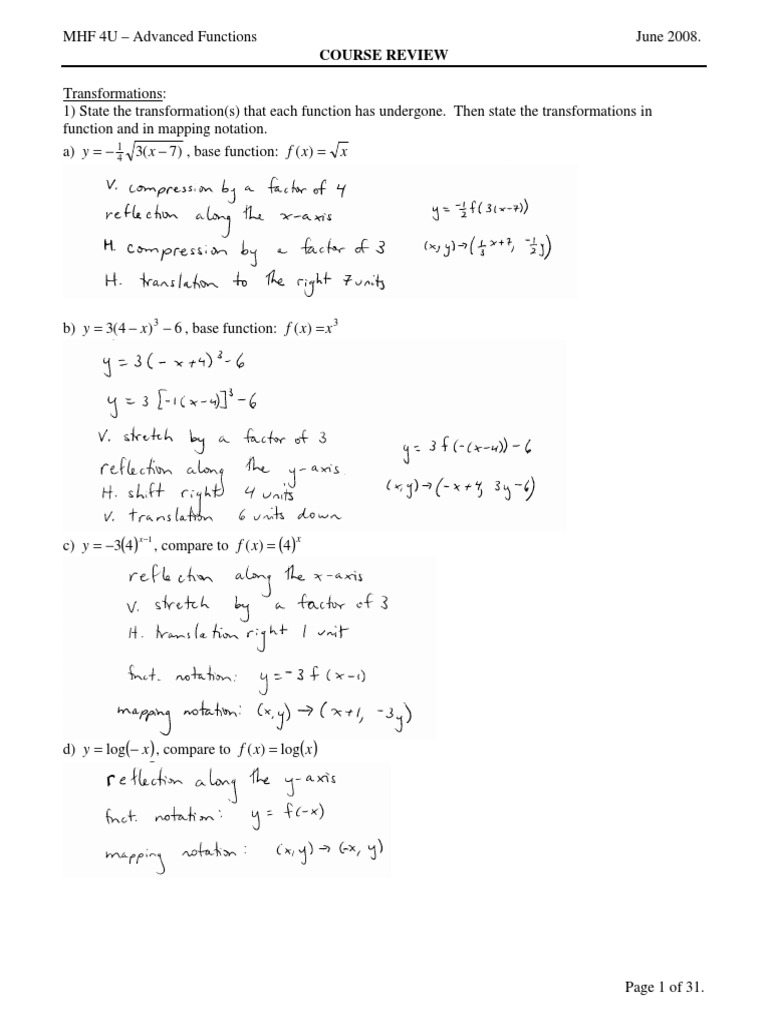 MHF 4U – Advanced Functions June 2008.
COURSE REVIEW
Transformations:
1) State the transformation(s) that each function has undergone. Then state the transformations in
function and in mapping notation.
a) y = −1/4 √(3(x − 7)) , base function: f(x) = √x
V. compression by a factor of 4
reflection along the x-axis
y = -1/2 f(3(x-7))
H. compression by a factor of 3
(x, y) → (1/3 x + 7, -1/2 y)
H. translation to the right 7 units
b) y = 3(4 − x)³ − 6 , base function: f(x) = x³
y = 3(-x+4)³-6
y = 3[-1(x-4)]³-6
V. stretch by a factor of 3
y = 3f(-(x-4))-6
reflection along the y-axis.
H. shift right 4 units
(x, y) → (-x+4, 3y-6)
V. translation 6 units down
c) y = −3(4)ˣ⁻¹ , compare to f(x) = (4)ˣ
reflection along the x-axis
V. stretch by a factor of 3
H. translation right 1 unit
fnct. notation: y = -3f(x-1)
mapping notation: (x, y) → (x+1, -3y)
d) y = log(− x), compare to f(x) = log(x)
reflection along the y-axis
fnct. notation: y = f(-x)
mapping notation: (x, y) → (-x, y)
Page 1 of 31.